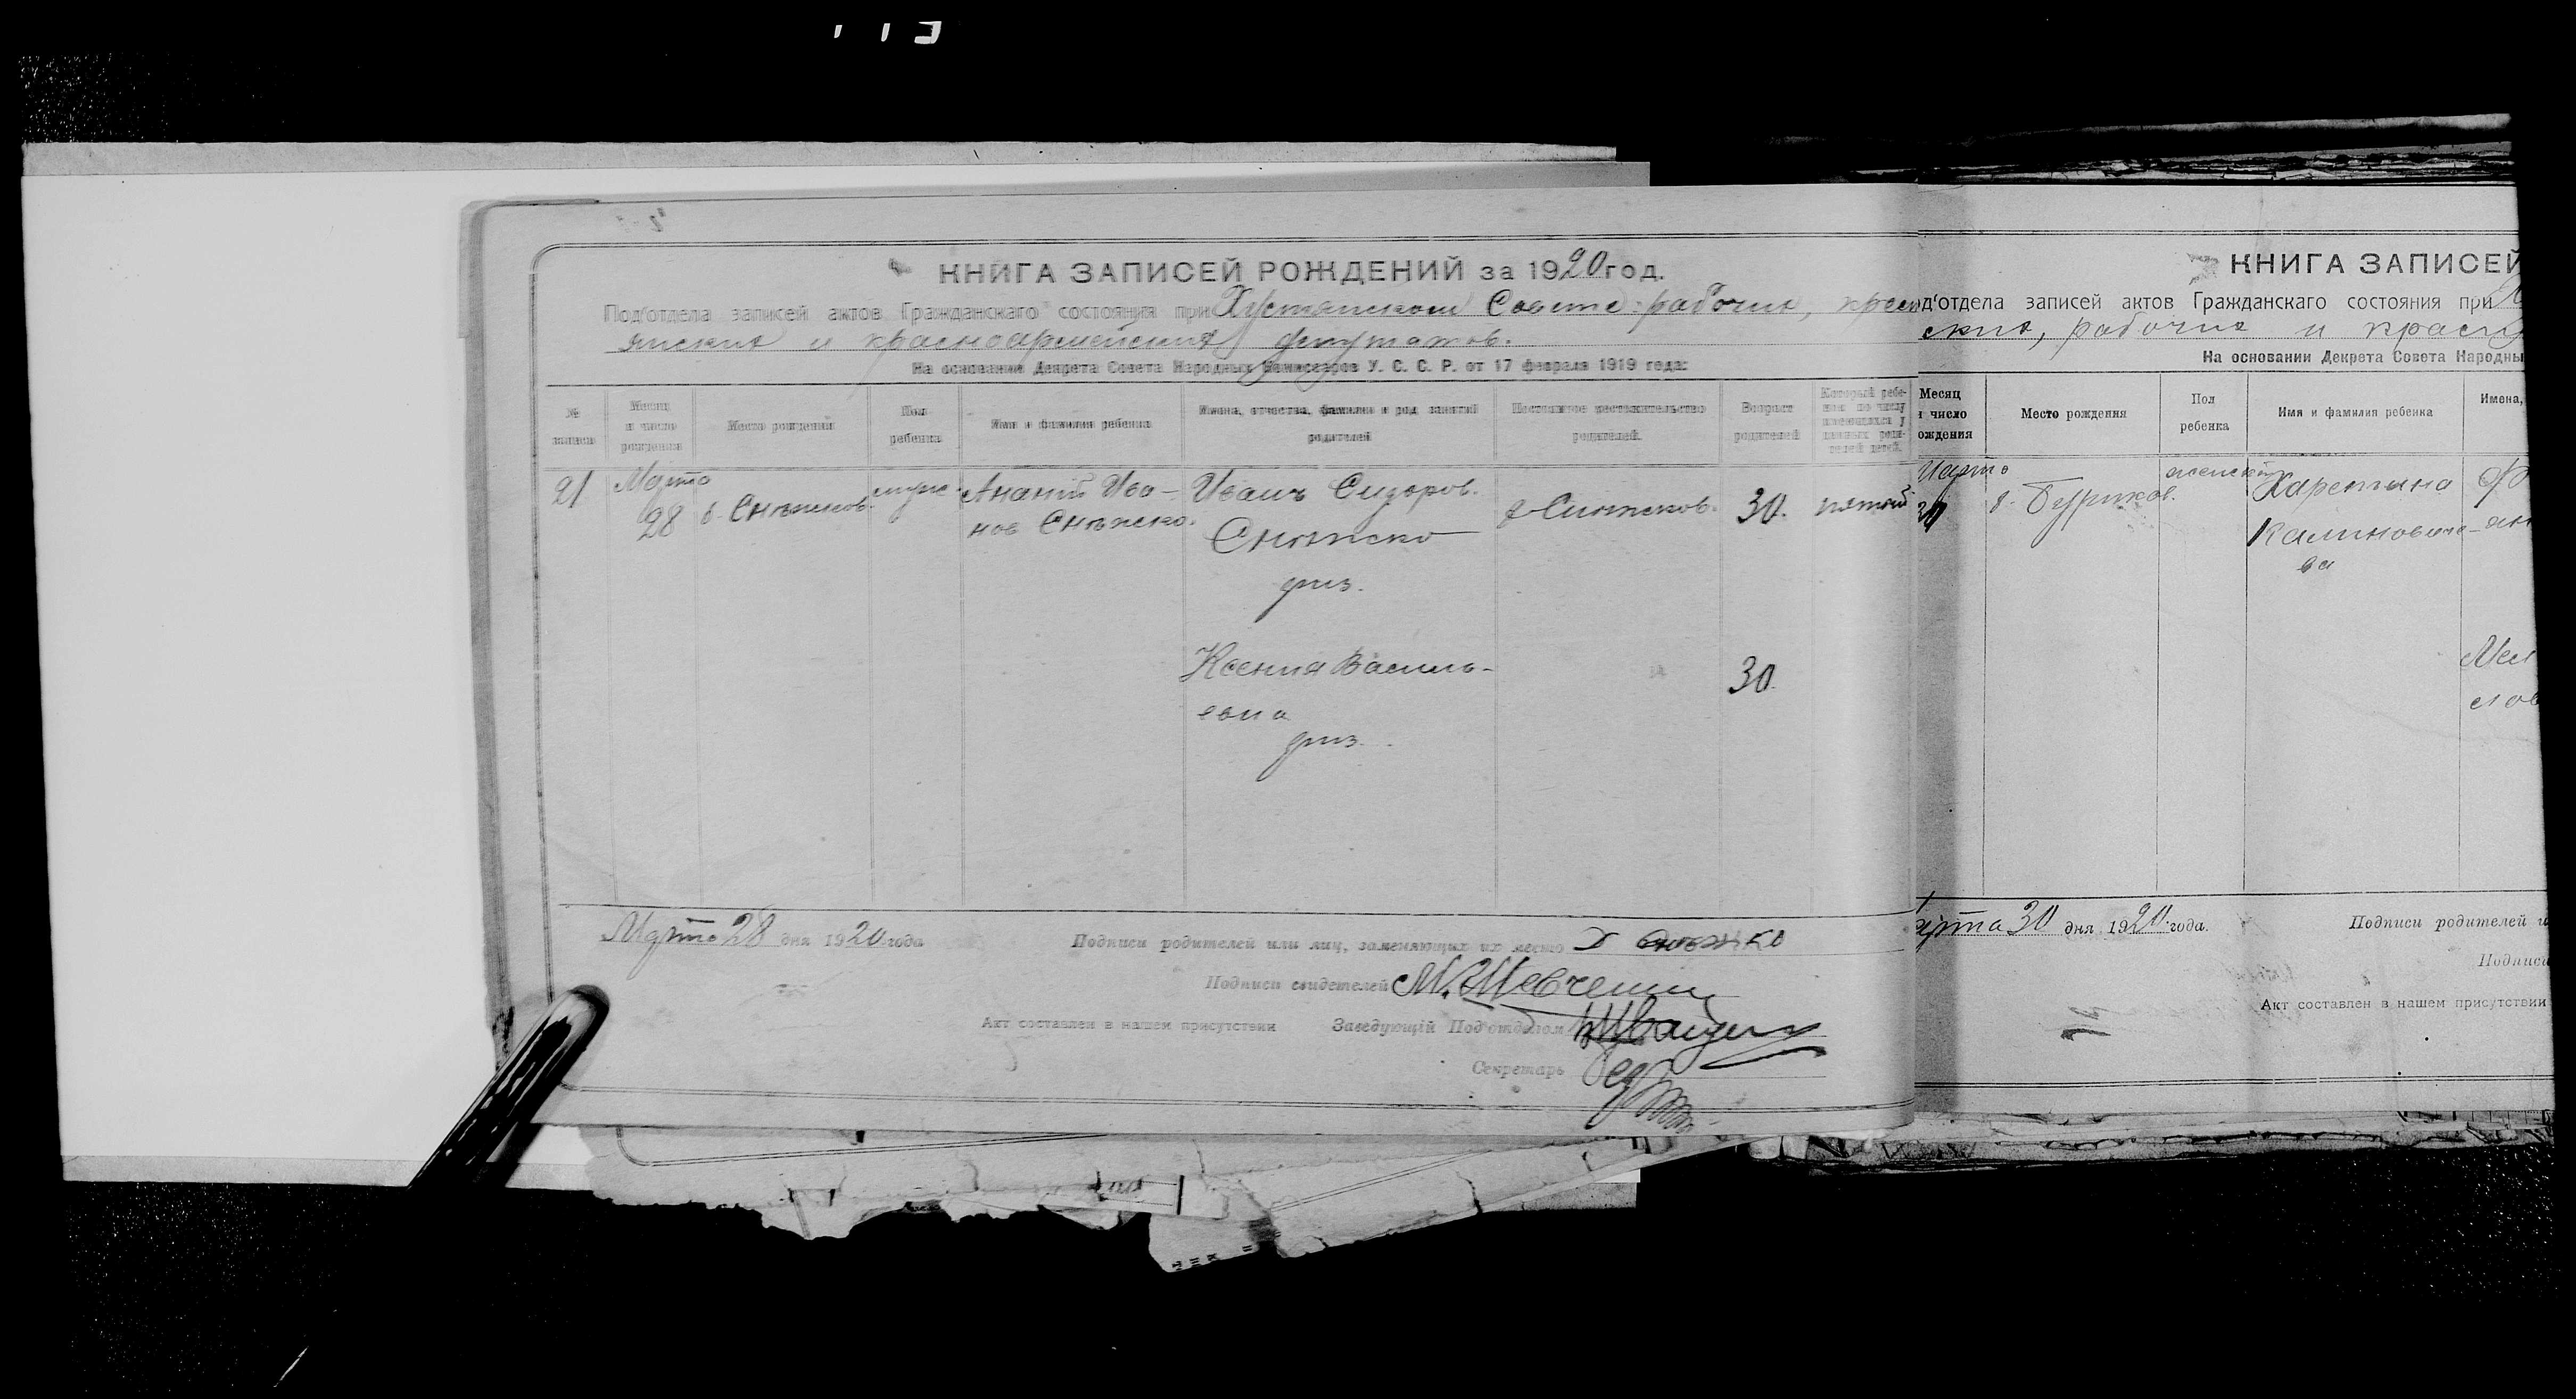 КНИГА ЗАПИСЕЙ РОЖДЕНИЙ за 1920 год.
Под'отдела записей актов Гражданскаго состояния при Хустянском Совете рабочих, крест
янских и красноармейских депутатов.
На основании Декрета Совета Народных Комиссаров У. С. С. Р. от 17 февраля 1919 года:
№ записи
Месяц и число рождения
Место рождения
Пол ребенка
Имя и фамилия ребенка
Имена, отчества, фамилия и род занятий родителей
Постоянное местожительство родителей.
Возраст родителей
Который ребенок по числу имеющихся у данных родителей детей.
21
Марта
28
Снежков.
муж.
Ананий Ива-
нов Снѣжко.
Иванъ Сидоров.
Снѣжко
Снежков.
30.
пятый
Ксения Василь-
евна
30.
Марта 28 дня 1920 года
Подписи родителей или лиц, заменяющих их место Снѣжко
Подписи свидетелей М. Шевченко
Акт составлен в нашем присутствии Заведующій Под'отделом
Секретарь
КНИГА ЗАПИСЕЙ
од'отдела записей актов Гражданскаго состояния при
ских, рабочих и красн
На основании Декрета Совета Народны
Месяц
и число
ождения
Место рождения
Пол
ребенка
Имя и фамилия ребенка
Имена,
Марта
30
женский
Харетина
Калиновиче-
ва
арта 30 дня 1920 года.
Подписи родителей и
Подписи
Акт составлен в нашем присутствии